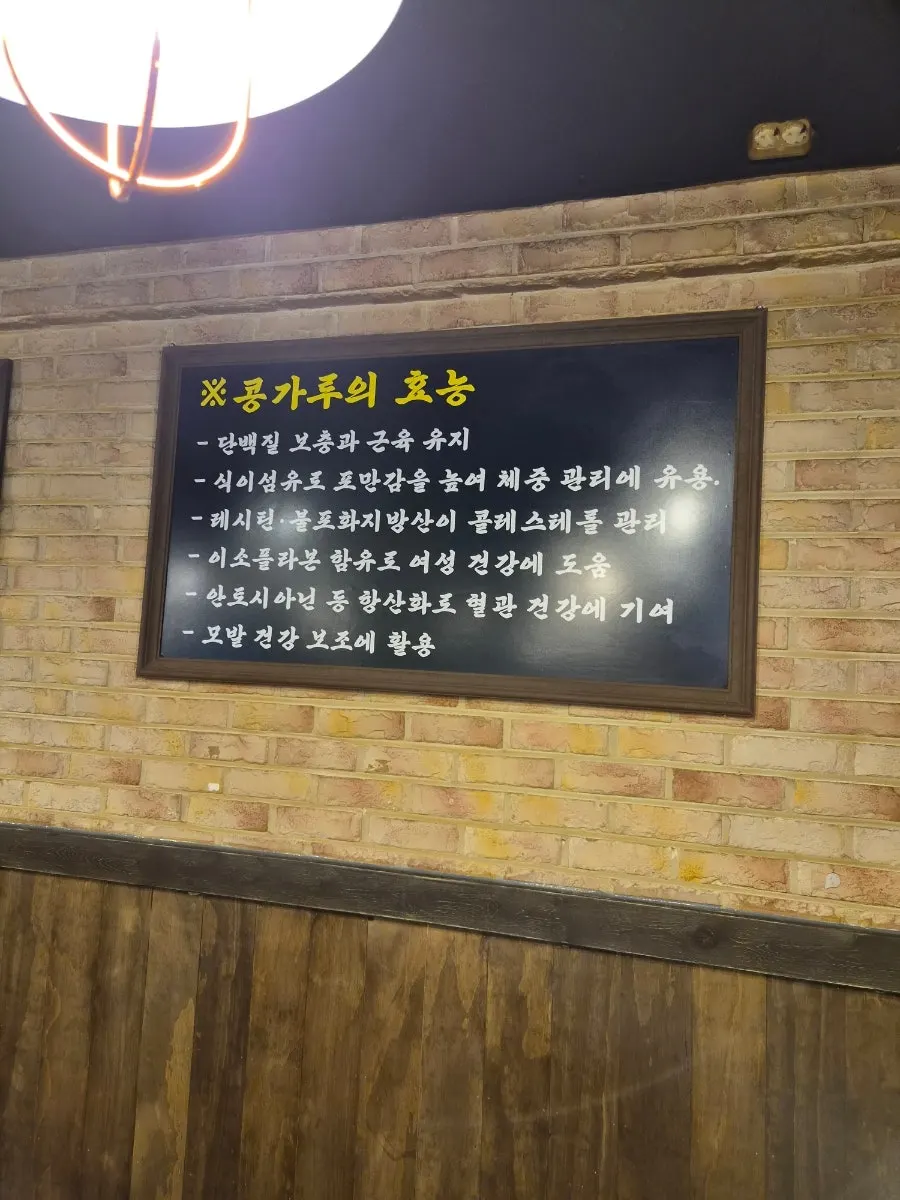 ※콩가루의 효능
- 단백질 보충과 근육 유지
- 식이섬유로 포만감을 높여 체중 관리에 유용.
- 레시틴·불포화지방산이 콜레스테롤 관리
- 이소플라본 함유로 여성 건강에 도움
- 안토시아닌 등 항산화로 혈관 건강에 기여
- 모발 건강 보조에 활용